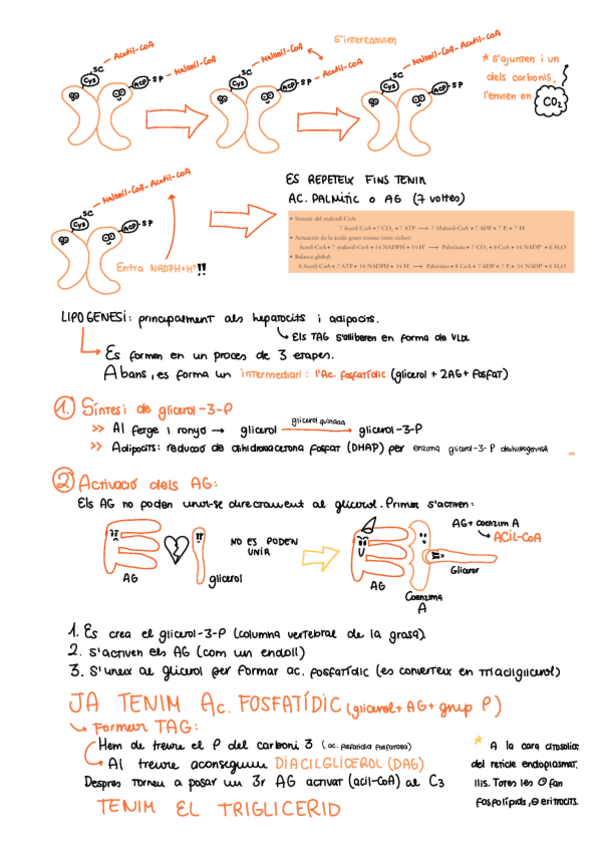 S'intercanvien
SC - Acetil-CoA
Cys
ACP - SP - Malonil-CoA
SC - Malonil-CoA
Cys
ACP - SP - Acetil-CoA
SC - Malonil-CoA-Acetil-CoA
Cys
ACP - SP
* S'ajunten i un
dels carbonis,
l'envien en CO2
SC - Malonil-CoA-Acetil-CoA
Cys
ACP - SP
Entra NADPH+H+!!
ES REPETEIX FINS TENIR
AC. PALMÍTIC O AG (7 voltes)
• Síntesis del malonil-CoA:
7 Acetil-CoA + 7 CO2 + 7 ATP → 7 Malonil-CoA + 7 ADP + 7 Pi + 7 H+
• Actuación de la ácido graso sintasa (siete ciclos):
Acetil-CoA + 7 malonil-CoA + 14 NADPH + 14 H+ → Palmitato + 7 CO2 + 8 CoA + 14 NADP+ + 6 H2O
• Balance global:
8 Acetil-CoA + 7 ATP + 14 NADPH + 14 H+ → Palmitato + 8 CoA + 7 ADP + 7 Pi + 14 NADP+ + 6 H2O
LIPOGENESI: principalment als hepatocits i adipocits.
Els TAG s'alliberen en forma de VLDL
Es formen en un proces de 3 etapes.
Abans, es forma un intermediari: l'Ac. fosfatídic (glicerol + 2AG + fosfat)
1. Síntesi de glicerol-3-P
>> Al fetge i ronyó → glicerol glicerol quinasa → glicerol-3-P
>> Adipocits: reducció de dihidroxiacetona fosfat (DHAP) per enzima glicerol-3-P deshidrogenasa
2. Activació dels AG:
Els AG no poden unir-se directament al glicerol. Primer s'activen:
AG
glicerol
NO ES PODEN
UNIR
AG
Coenzima
A
Glicerol
AG + coenzim A
→ ACIL-CoA
1. Es crea el glicerol-3-P (columna vertebral de la grasa)
2. S'activen els AG (com un endoll)
3. S'uneix al glicerol per formar ac. fosfatídic (es converteix en triacilglicerol)
JA TENIM Ac. FOSFATÍDIC (glicerol + AG + grup P)
→ Formem TAG:
Hem de treure el P del carboni 3
Al treure aconseguim DIACILGLICEROL (DAG)
Despres tornem a posar un 3r AG activat (acil-CoA) al C3
TENIM EL TRIGLICERID
* A la cara citosolica
del reticle endoplasmat.
llis. Totes les fan
fosfolípids, eritrocits.